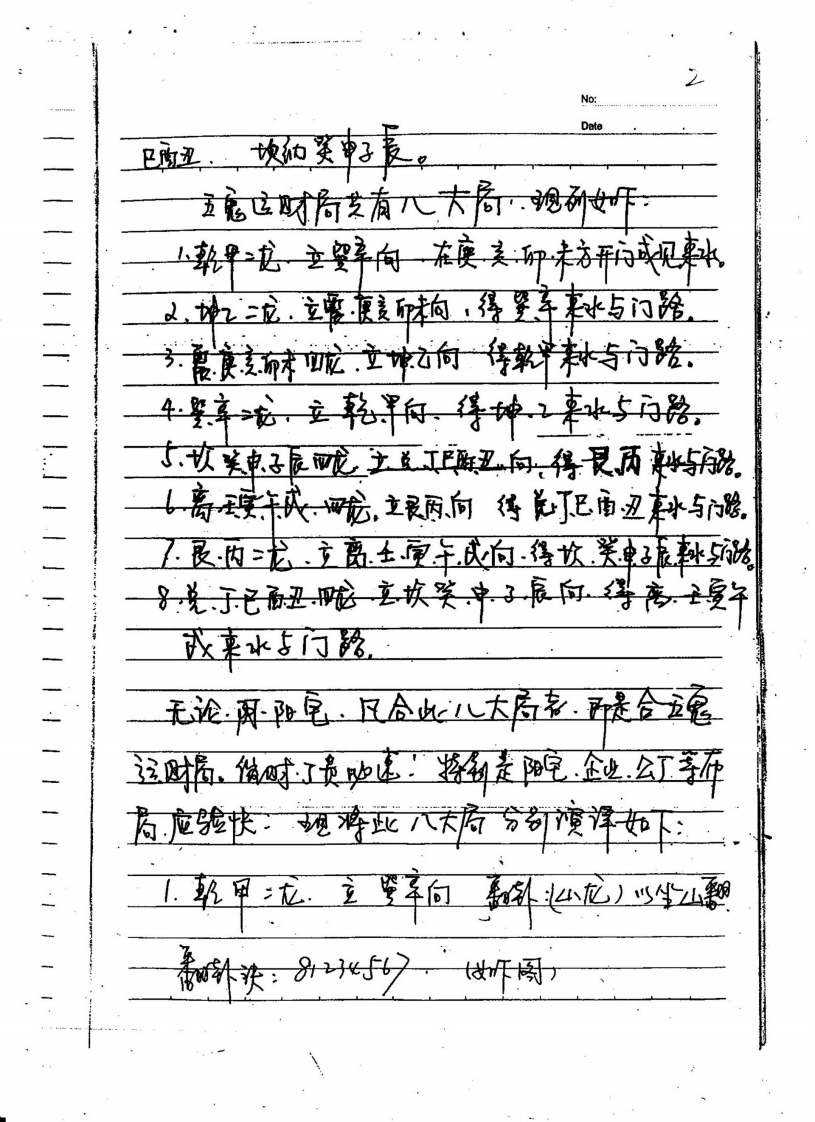 2
No:
Date
巳酉丑. 坎纳癸申子辰。
五鬼运财局共有八大局,现列如下:
1.乾甲二龙.立巽辛向.在庚.亥.卯.未方开门或见来水。
2、坤乙二龙.立震.庚亥卯未向,得巽辛来水与门路。
3.震.庚亥卯未四龙.立坤乙向 得乾甲来水与门路。
4.巽辛二龙.立乾甲向.得坤.乙来水与门路。
5.坎癸申子辰四龙.立兑丁巳酉丑向,得艮丙来水与门路。
6.离.壬寅午戌.四龙.立艮丙向 得兑丁巳酉丑来水与门路。
7.艮.丙二龙.立离.壬.寅午.戌向.得坎.癸申子辰来水与门路。
8.兑.丁巳酉丑.四龙.立坎癸.申.子.辰向.得离.壬寅午
戌来水与门路.
无论.阴.阳宅.凡合此八大局者.即是合五鬼
运财局。催财.丁贵.特别是阳宅.企业.公丁等布
局.应验快:现将此八大局分别演译如下:
1.乾甲二龙.立巽辛向 翻卦:(山龙)以坐山翻
翻卦诀:81234567.(如下图)